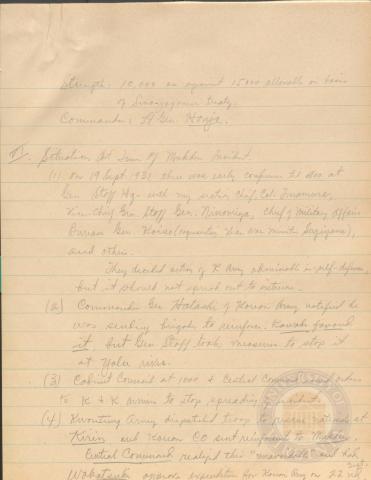 Strength: 10,000 as against 15000 allowable on basis
of treaty.
Commander: Lt Gen. Honjo.
V. Situation At Time Of Mukden Incident.
(1) On 19 Sept. 1931 there was early conference
Gen Staff Hq. with my section Chief, Col. Imamura,
Vice Chief Gen. Staff Gen. Ninomiya, Chief of Military Affairs
Bureau Gen. Koiso (representing Vice War Minister Sugiyama),
and others.
They decided action of K Army in self-defense,
but it should not spread out to
(2) Commander Gen Hayashi of Korean Army notified he
was sending brigade to reinforce. Kawabe favored
it, but Gen Staff took measures to stop it
at Yalu river.
(3) Cabinet Council at 1000 & Central Command sent orders
to K & K armies to stop spreading of incident.
(4) Kwantung Army dispatched troops to nationals at
Kirin and Korean CO sent reinforcement to Mukden.
Central Command realized this and
Wakatsuki approve expenditure for Korean Army on 22 nd
Sept.